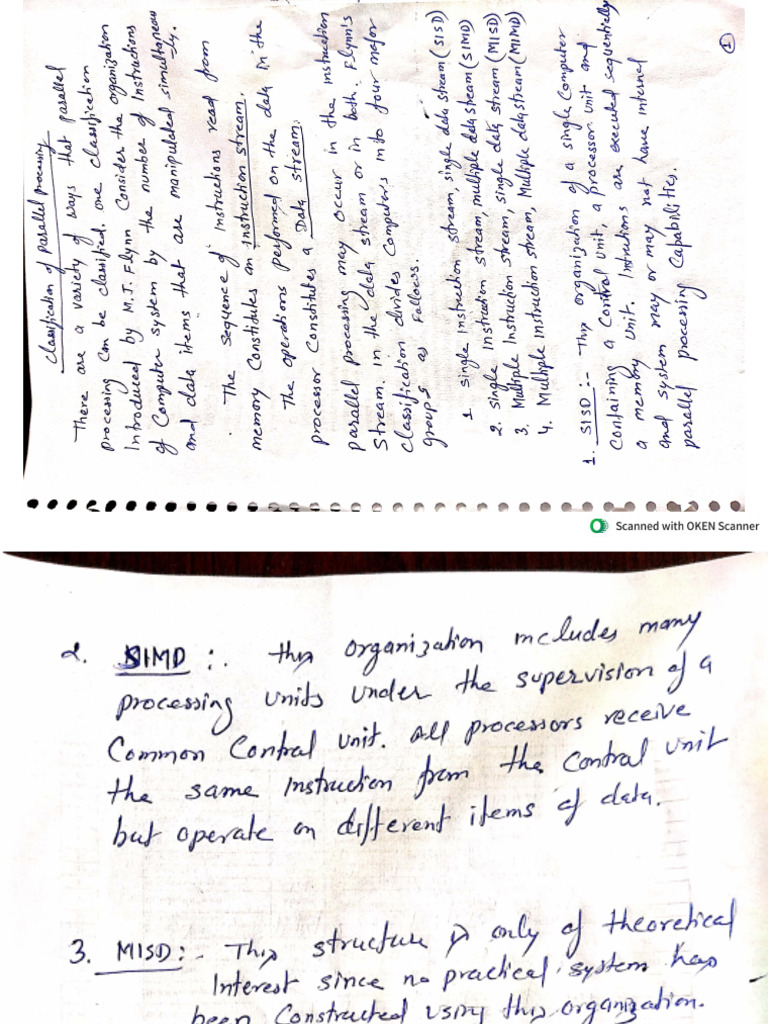 Classification of parallel processing
There are a variety of ways that parallel
processing can be classified. one classification
Introduced by M.J. Flynn Consider the organization
of Computer system by the number of Instructions
and data items that are manipulated simultaneous
-ly.
The sequence of instructions read from
memory Constitutes an Instruction stream.
The operations performed on the data in the
processor Constitutes a Data stream.
parallel processing may occur in the instruction
stream. in the data stream or in both. Flynn's
classification divides Computers into four major
groups as Follows.
1. single instruction stream, single data stream (SISD)
2. Single Instruction stream, multiple data stream (SIMD)
3. Multiple Instruction stream, single data stream (MISD)
4. Multiple instruction stream, Multiple data stream (MIMD)
1. SISD :- This organization of a single Computer
Containing a Control unit, a processor unit and
a memory unit. Instructions are executed sequentially
and system may or may not have internal
parallel processing Capabilities.
1
Scanned with OKEN Scanner
2. SIMD :- this organization includes many
processing units under the supervision of a
Common Control unit. All processors receive
the same Instruction from the Control unit
but operate on different items of data.
3. MISD:- This structure is only of theoretical
Interest since no practical system has
been Constructed using this organization.